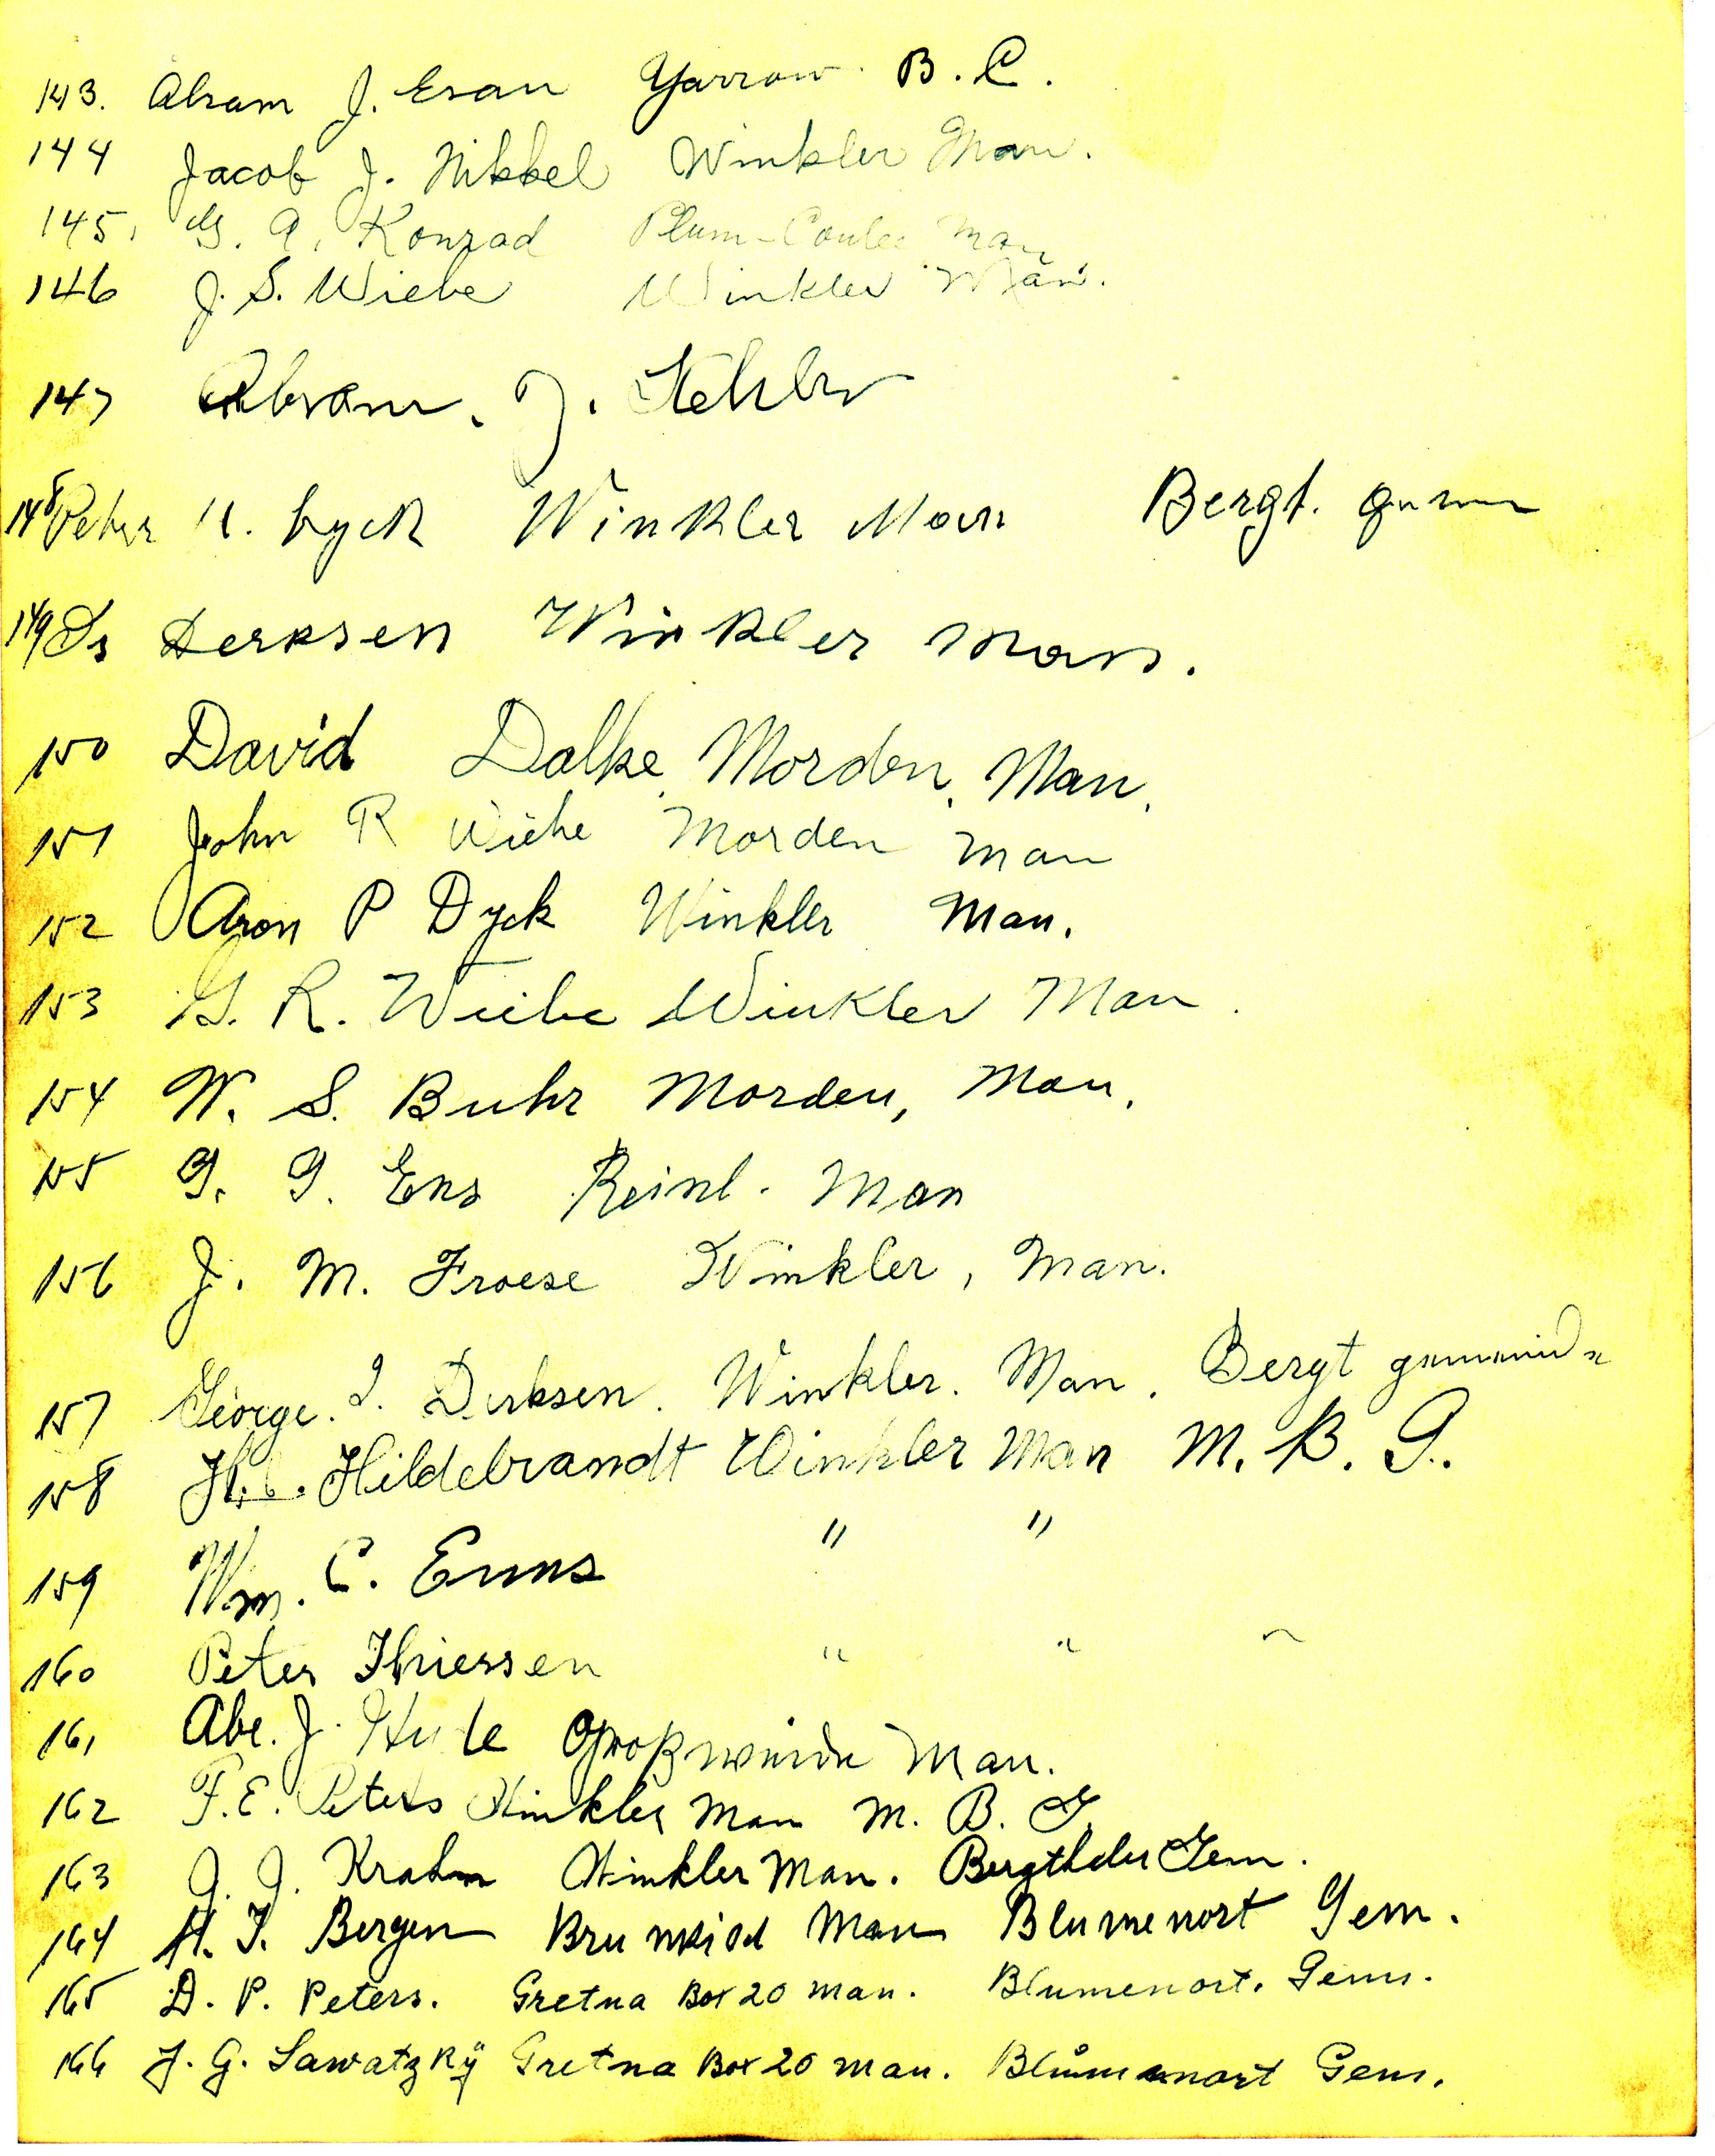 143. Abram J. Esau Yarrow. B. C.
144 Jacob J. Nikkel Winkler Man.
145. G. A. Konrad Plum-Coulee Man
146 J. S. Wiebe Winkler Man.
147 Abram. J.
148 Peter H. Dyck Winkler Man Bergt.
149 Is Derksen Winkler Man.
150 David Dalke, Morden, Man.
151 John R Wiebe Morden Man
152 Aron P Dyck Winkler Man.
153 G. R. Wiebe Winkler Man.
154 W. S. Buhr Morden, Man.
155 G. G. Ens Reinl. Man
156 J. M. Froese Winkler, Man.
157 George. I. Derksen. Winkler. Man. Bergt gemeinde
158 Hildebrandt Winkler Man M. B. G.
159 Wm. C. Enns " "
160 Peter Thiessen " " "
161 Abe. J. Großweide Man.
162 F. E. Peters Winkler Man M. B. G
163 J. J. Krahn Winkler Man. Bergthaler Gem.
164 H. T. Bergen Brunkild Man Blumenort Gem.
165 D. P. Peters. Gretna Box 20 Man. Blumenort. Gem.
166 J. G. Sawatzkÿ Gretna Box 20 Man. Blůmenort Gem.